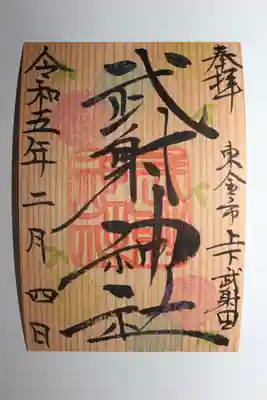 奉拝
東金市上下武射田
武射神社
令和五年二月四日